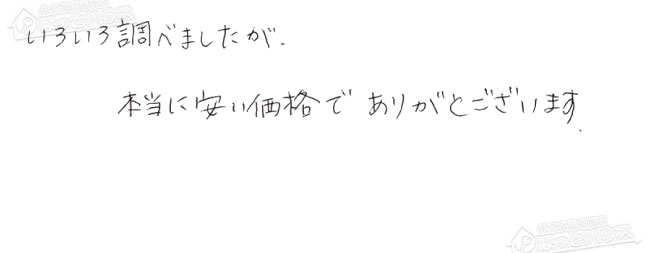 いろいろ調べましたが.
本当に安い価格で ありがとございます.